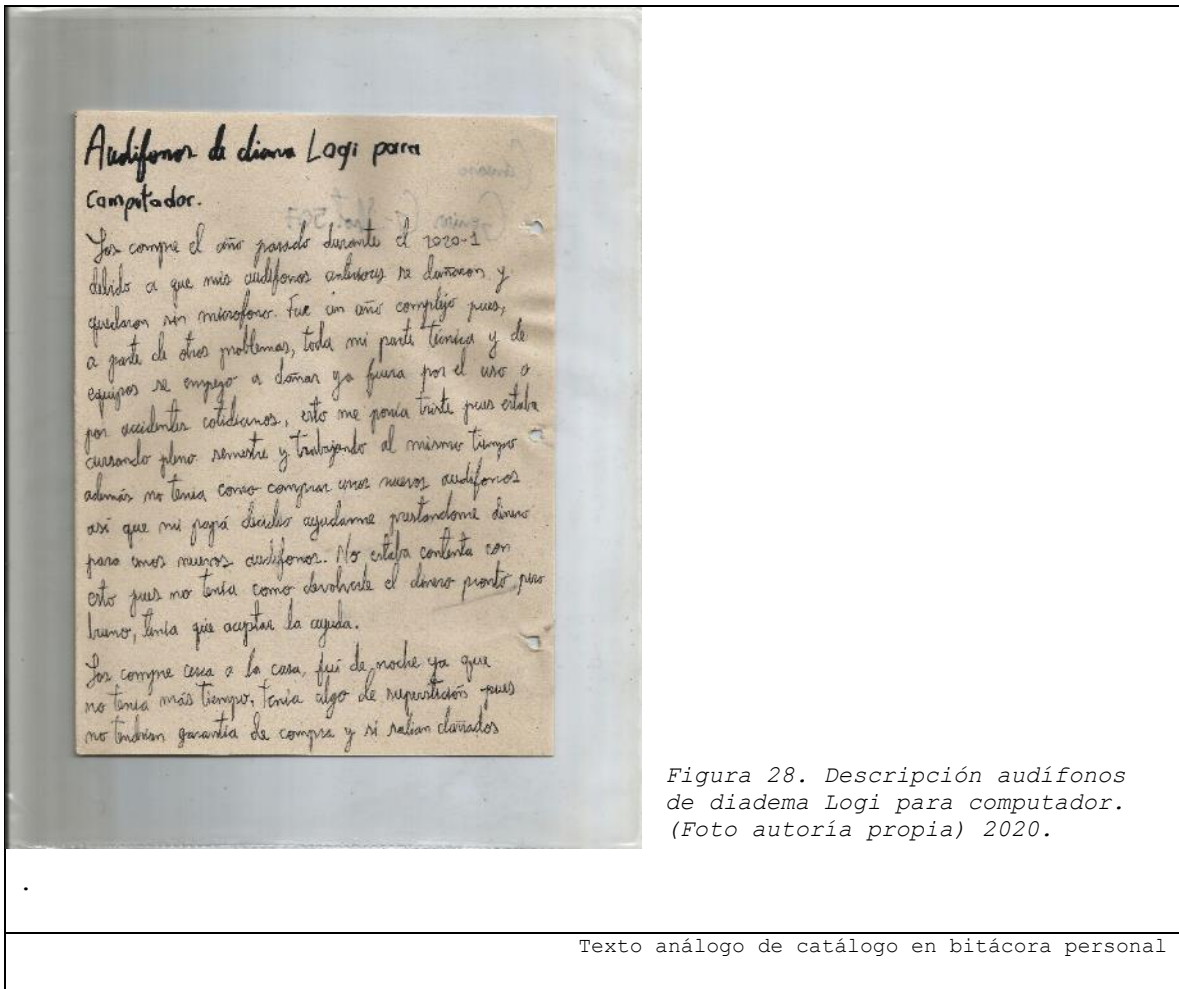 Audifonos de diana Logi para
computador.
Los compre el año pasado durante el 2020-1
debido a que mis audifonos anteriores se dañaron y
quedaron sin microfono. Fue un año complejo pues,
a parte de otros problemas, toda mi parte técnica y de
equipos se empezo a dañar ya fuera por el uso o
por accidentes cotidianos, esto me ponía triste pues estaba
cursando pleno semestre y trabajando al mismo tiempo
además no tenia como comprar unos nuevos audifonos
así que mi papá decidio ayudarme prestandome dinero
para unos nuevos audifonos. No estaba contenta con
esto pues no tenía como devolverle el dinero pronto pero
bueno, tenía que aceptar la ayuda.
Los compre cerca a la casa, fuí de noche ya que
no tenía más tiempo, tenía algo de superstición pues
no tendrian garantía de compra y si salian dañados
Figura 28. Descripción audífonos
de diadema Logi para computador.
(Foto autoría propia) 2020.
.
Texto análogo de catálogo en bitácora personal